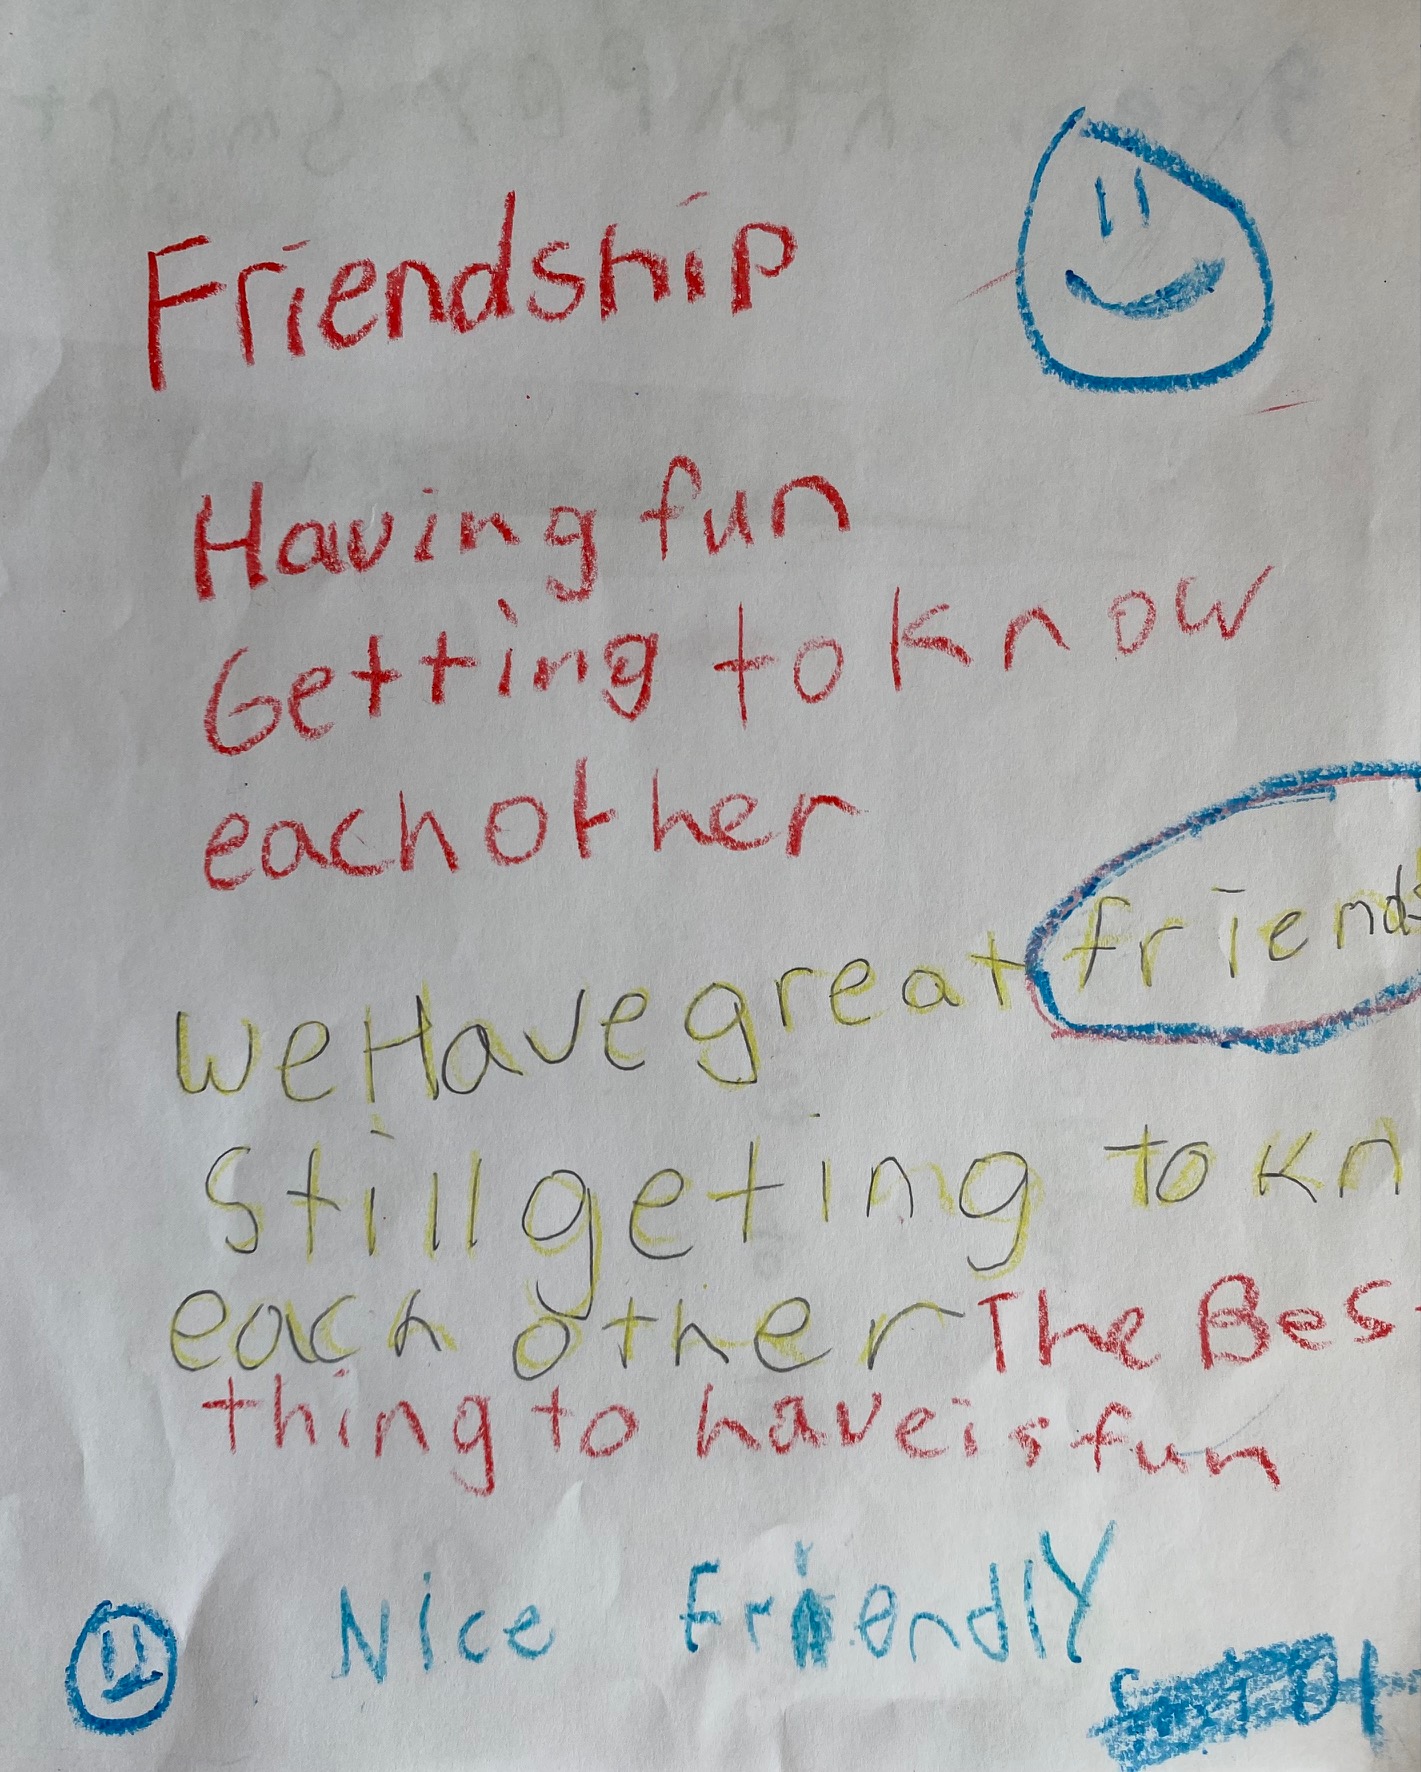 Friendship
Having fun
Getting to know
each other
We Have great friends
Still geting to kn
each other The Bes
thing to have is fun
Nice Friendly